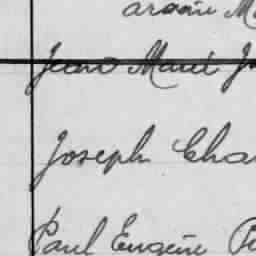 Jean Marie
Joseph Cha
Paul Eugène